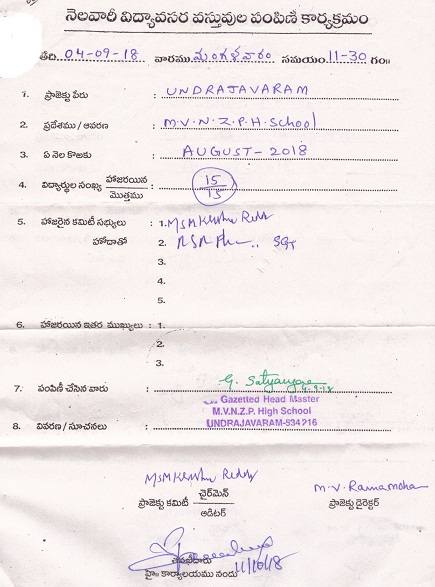 నెలవారీ విద్యావసర వస్తువుల పంపిణీ కార్యక్రమం
తేది: 04-09-18 వారము మంగళవారం సమయం: 11-30 గం॥
1. ప్రాజెక్టు పేరు : UNDRAJAVARAM
2. ప్రదేశము / ఆవరణ : M.V.N.Z.P.H.School
3. ఏ నెల కొఱకు : AUGUST-2018
4. విద్యార్థుల సంఖ్య హాజరయిన : 15
మొత్తము 15
5. హాజరైన కమిటీ సభ్యులు : 1. MSM Krishna Reddy
హోదాతో 2. SGT
3.
4.
5.
6. హాజరయిన ఇతర ముఖ్యులు : 1.
2.
3.
7. పంపిణీ చేసిన వారు : G. Satyan
4-9-18
Gazetted Head Master
M.V.N.Z.P. High School
8. వివరణ / సూచనలు : UNDRAJAVARAM-534216
MSM Krishna Reddy
M.V. Ramamoha
ప్రాజెక్టు కమిటీ చైర్‌మెన్ ప్రాజెక్టు డైరెక్టర్
ఆడిటర్
హై॥ కార్యాలయము నందు 11/10/18